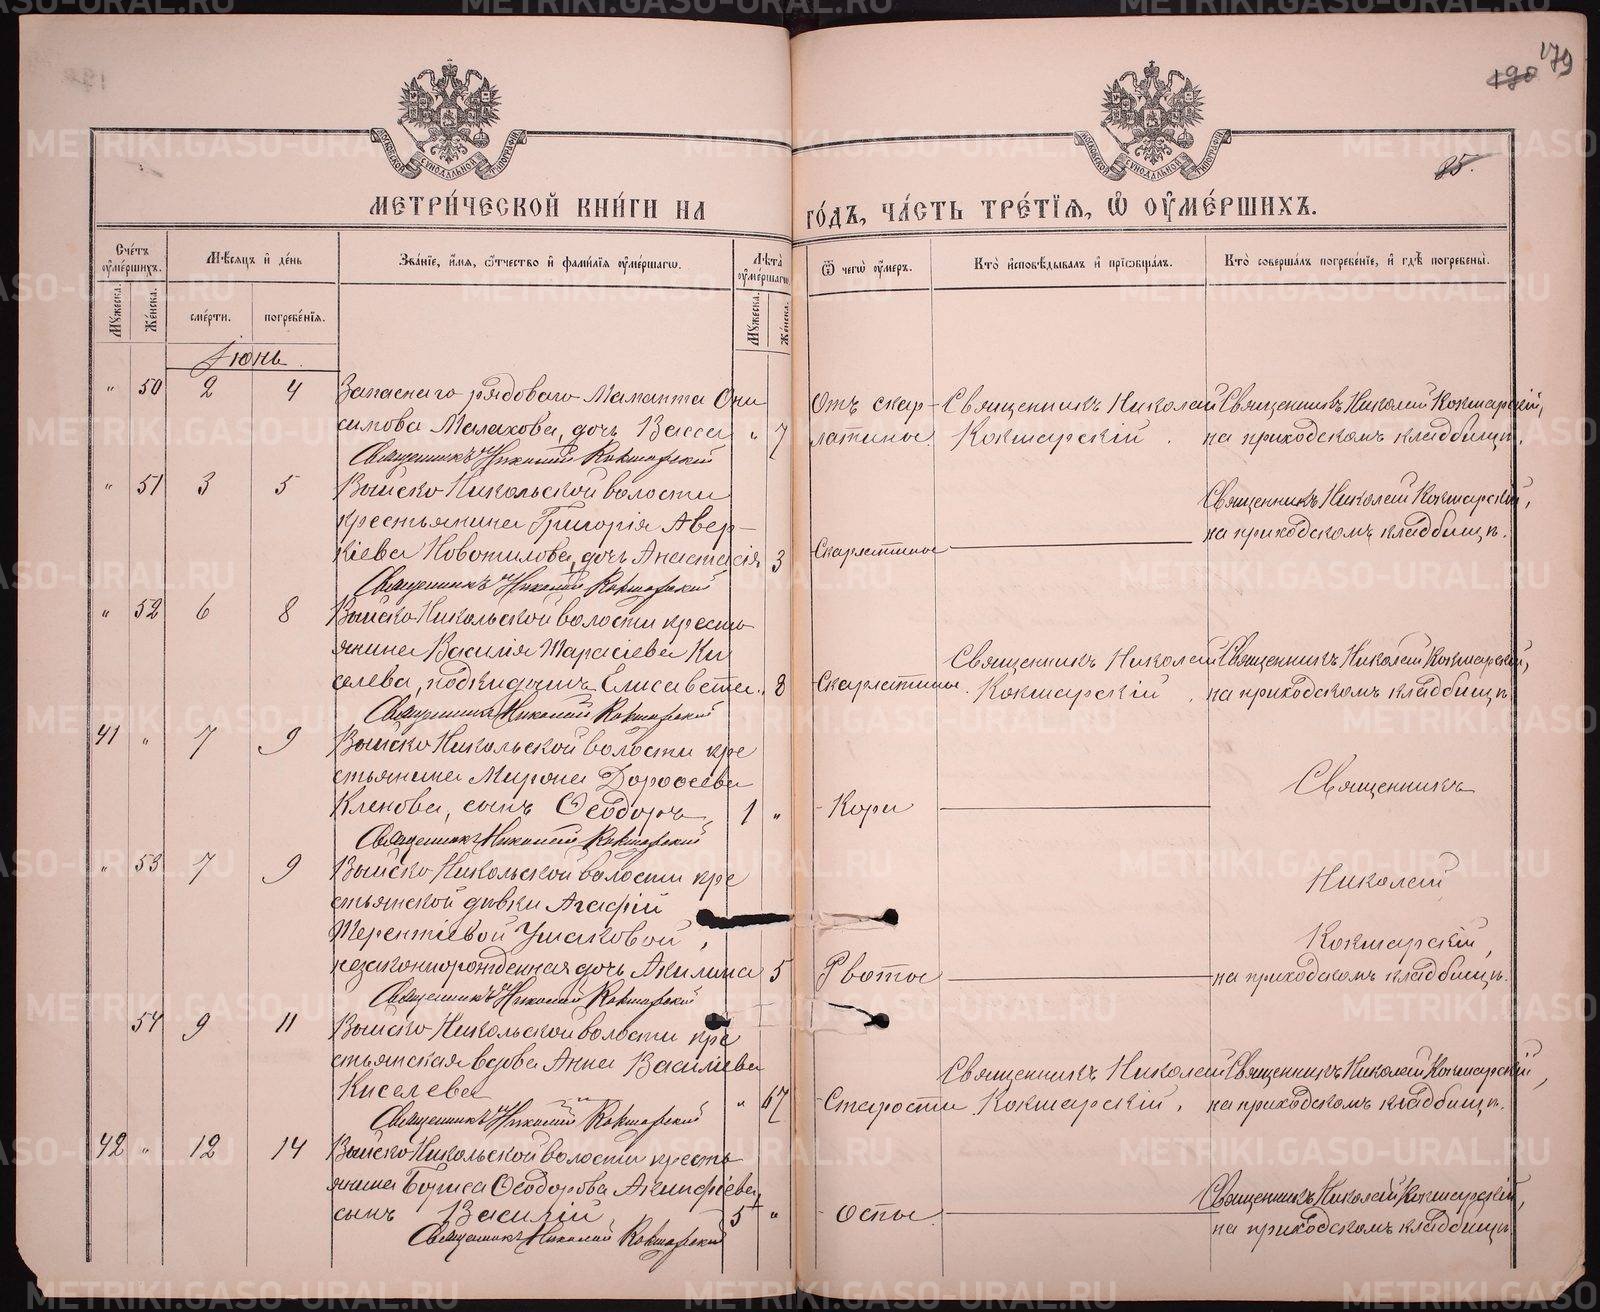 179
190
85.
МЕТРИ́ЧЕСКОЙ КНИ́ГИ НА
ГО́ДЪ, ЧА́СТЬ ТРЕ́ТЇѦ, Ѡ ОУМЕ́РШИХЪ.
Сче́тъ оуме́ршихъ.
Мѣ́сяцъ и де́нь
Зва́нїе, и́мя, о́тчество и фами́лїя оуме́ршагѡ.
Лѣ́та оуме́ршагѡ.
Ѿ чегѡ̀ оу́меръ.
Кто̀ и́сповѣ́дывалъ и прїѡбща́лъ.
Кто̀ соверша́лъ погребе́нїе, и гдѣ̀ погребены̀.
Мꙋ́жеска.
Же́нска.
сме́рти.
погребе́нїя.
Мꙋ́жеска.
Же́нска.
Іюнь.
" 50 2 4 Запаснаго рядоваго Маманта Они
симова Малахова, дочь Васса " 7
Священникъ Николай Кокшарский
Отъ скар-
латины
Священникъ Николай
Кокшарскій.
Священникъ Николай Кокшарскій,
на приходскомъ кладбищѣ.
" 51 3 5 Выйско-Никольской волости
крестьянина Григорія Авер-
кіева Новотилова, дочь Анастасія 3
Священникъ Николай Кокшарский
Скарлатины
Священникъ Николай Кокшарскій,
на приходскомъ кладбищѣ.
" 52 6 8 Выйско-Никольской волости кресть
янина Василія Тарасіева Ки
селева, подкидышъ Елисавета " 8
Священникъ Николай Кокшарский
Скарлатины.
Священникъ Николай
Кокшарскій.
Священникъ Николай Кокшарскій,
на приходскомъ кладбищѣ
41 " 7 9 Выйско-Никольской волости кре
стьянина Мирона Дороѳеева
Кленова, сынъ Ѳеодоръ 1 "
Священникъ Николай Кокшарский
Кори
Священникъ
" 53 7 9 Выйско-Никольской волости кре
стьянской дѣвки Агафіи
Терентіевой Ушаковой,
незаконнорожденная дочь Акилина 5
Священникъ Николай Кокшарский
Рвоты
Николай
Кокшарскій,
на приходскомъ кладбищѣ.
54 9 11 Выйско-Никольской волости кре
стьянская вдова Анна Васильева
Киселева " 67
Священникъ Николай Кокшарский
Старости
Священникъ Николай
Кокшарскій.
Священникъ Николай Кокшарскій,
на приходскомъ кладбищѣ.
42 " 12 14 Выйско-Никольской волости кресть
янина Бориса Ѳеодорова Акинфіева,
сынъ Василій 5 "
Священникъ Николай Кокшарский
Оспы.
Священникъ Николай Кокшарскій,
на приходскомъ кладбищѣ
METRIKI.GASO-URAL.RU